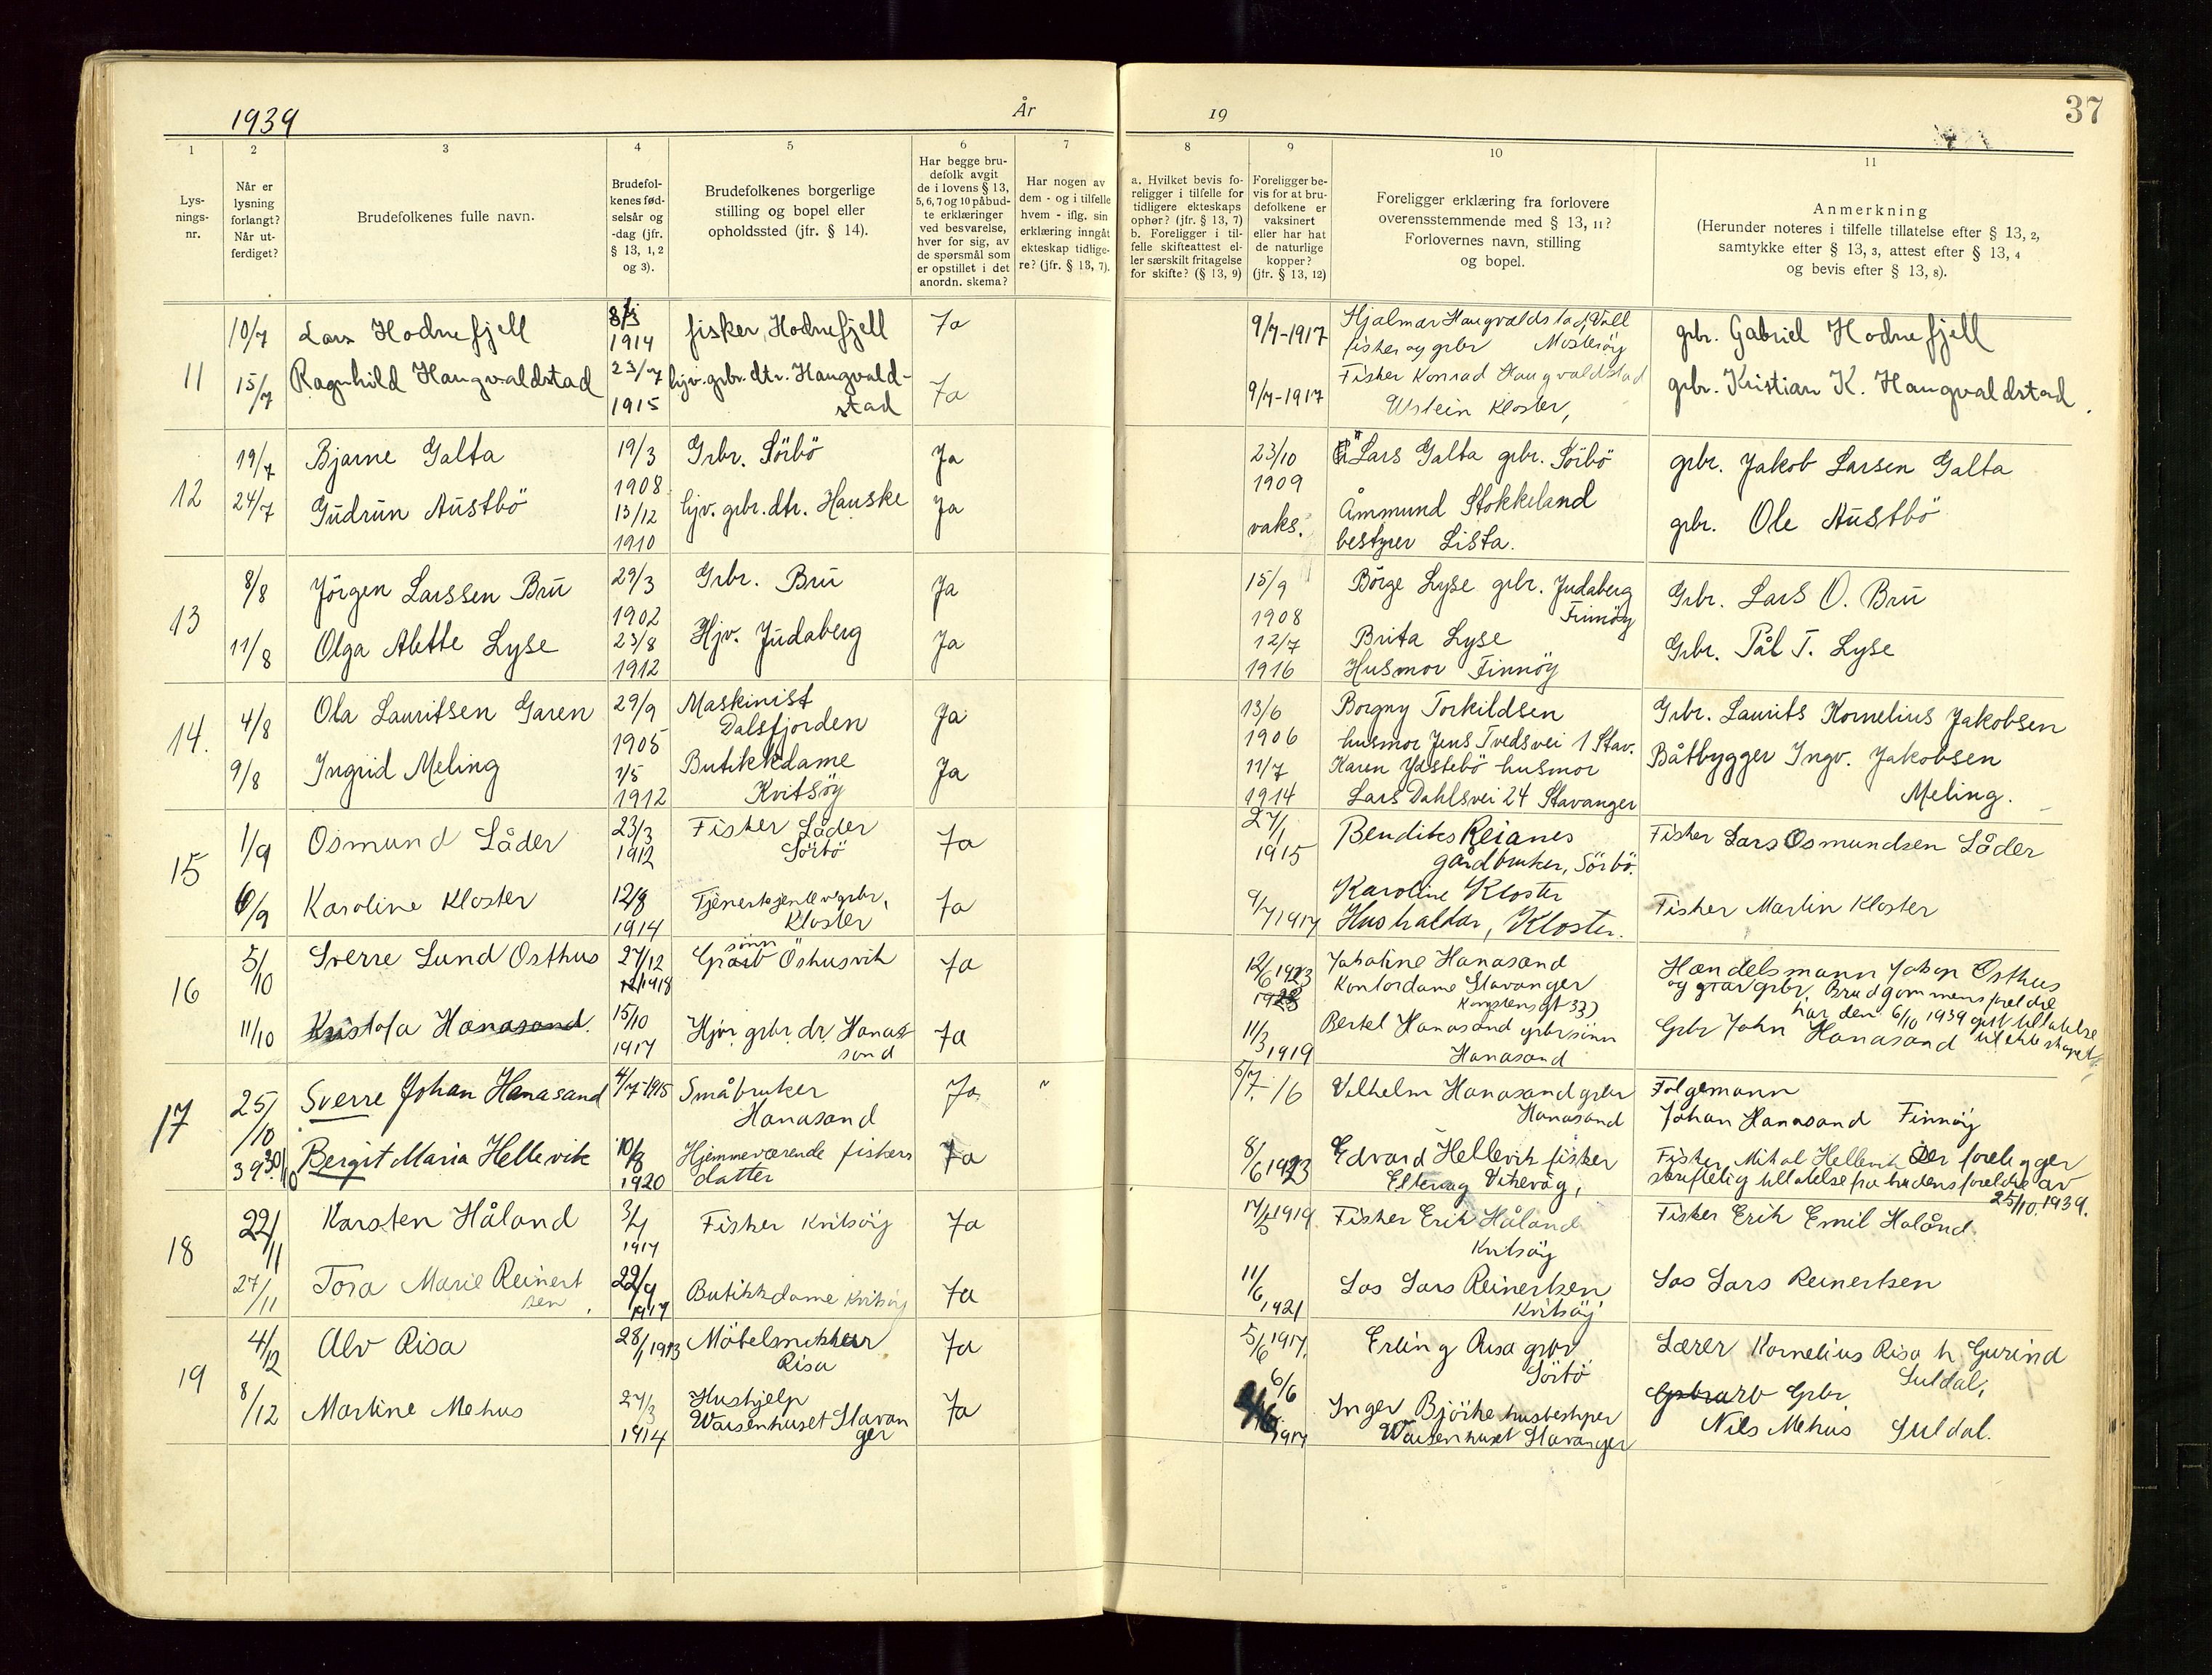 1939 År 19 37
1 2 3 4 5 6 7 8 9 10 11
Lys-
nings-
nr.
Når er
lysning
forlangt?
Når ut-
ferdiget?
Brudefolkenes fulle navn.
Brudefol-
kenes fød-
selsår og
-dag (jfr.
§ 13, 1, 2
og 3).
Brudefolkenes borgerlige
stilling og bopel eller
opholdssted (jfr. § 14).
Har begge bru-
defolk avgit
de i lovens § 13,
5, 6, 7 og 10 påbud-
te erklæringer
ved besvarelse,
hver for sig, av
de spørsmål som
er opstillet i det
anordn. skema?
Har nogen av
dem - og i tilfelle
hvem - iflg. sin
erklæring inngått
ekteskap tidlige-
re? (jfr. § 13, 7).
a. Hvilket bevis fo-
religger i tilfelle for
tidligere ekteskaps
ophør? (jfr. § 13, 7)
b. Foreligger i til-
felle skifteattest el-
ler særskilt fritagelse
for skifte? (§ 13, 9)
Foreligger be-
vis for at bru-
defolkene er
vaksinert
eller har hat
de naturlige
kopper?
(jfr. § 13, 12)
Foreligger erklæring fra forlovere
overensstemmende med § 13, 11?
Forlovernes navn, stilling
og bopel.
Anmerkning
(Herunder noteres i tilfelle tillatelse efter § 13, 2,
samtykke efter § 13, 3, attest efter § 13, 4
og bevis efter § 13, 8).
11
10/7 Lars Hodnefjell 8/3 1914 fisker, Hodnefjell Ja 9/7-1917 Hjalmar Haugvaldstad, Vall
fisker og grbr Mosterøy grbr. Gabriel Hodnefjell
15/7 Ragnhild Haugvaldstad 23/7 1915 hjv. grbr. dtr. Haugvald-
stad Ja 9/7-1917 Fisker Konrad Haugvaldstad
Utstein Kloster, grbr. Kristian K. Haugvaldstad.
12
19/7 Bjarne Galta 19/3 1908 Grbr. Sörbö Ja 23/10 1909 Lars Galta grbr. Sörbö grbr. Jakob Larsen Galta
24/7 Gudrun Austbö 13/12 1910 hjv. grbr. dtr. Hauske Ja vaks. Åmmund Stokkeland
bestyrer Lista. grbr. Ole Austbö
13
8/8 Jörgen Larssen Bru 29/3 1902 Grbr. Bru Ja 15/9 1908 Börge Lyse grbr. Judaberg
Finnöy Grbr. Lars O. Bru
11/8 Olga Alette Lyse 23/8 1912 Hjv. Judaberg Ja 12/7 1916 Brita Lyse
Husmor Finnöy Grbr. Pål T. Lyse
14.
4/8 Ola Lauritsen Garen 29/9 1905 Maskinist
Dalsfjorden Ja 13/6 1906 Borgny Torkildsen
husmor Jens Tvedsvei 1 Stav. Grbr. Laurits Kornelius Jakobsen
9/8 Ingrid Meling 1/5 1912 Butikkdame
Kvitsöy Ja 11/7 1914 Karen Ydstebö husmor
Lars Dahlsvei 24 Stavanger Båtbygger Ingv. Jakobsen
Meling.
15
1/9 Osmund Låder 23/3 1912 Fisker Låder
Sörbö Ja 27/1 1915 Bendiks Reianes
gårdbruker, Sörbö. Fisker Lars Osmundsen Låder
6/9 Karoline Kloster 12/8 1914 Tjenestejente v/grbr,
Kloster Ja 9/7 1917 Karoline Kloster
Hushaldar, Kloster. Fisker Martin Kloster
16
5/10 Sverre Lund Østhus 27/12 1918 sönn
Östhusvik Ja 12/6 1923 Jakobine Hanasand
Kontordame Stavanger
Kongstensgt 33) Handelsmann Johan Østhus
og grbr. Brudgommens foreldre
har den 6/10 1939 gitt tillatelse
til ekteskapet
11/10 Kristofa Hanasand. 15/10 1917 Hjv. grbr. dr. Hana-
sand Ja 11/3 1919 Bertel Hanasand grbrsönn
Hanasand Grbr John Hanasand
17
25/10 39 Sverre Johan Hanasand 4/7-1915 Småbruker
Hanasand Ja " 5/7. 16 Vilhelm Hanasand grbr
Hanasand Folgemann
Johan Hanasand Finnöy
30/10 Bergit Maria Hellevik 10/8 1920 Hjemmeværende fiskers
datter Ja 8/6 1923 Edvard Hellevik fisker
Vikevåg, Fisker Mikal Hellevik Der foreligger
skriftelig tillatelse fra brudens foreldre av
25/10.1939.
18
22/11 Karsten Håland 3/1 1917 Fisker Kvitsöy Ja 17/5 1919 Fisker Erik Håland
Kvitsöy Fisker Erik Emil Håland
27/11 Tora Marie Reinert
sen 22/9 1917 Butikkdame Kvitsöy Ja 11/6 1921 Los Lars Reinertsen
Kvitsöy Los Lars Reinertsen
19
4/12 Alv Risa 28/1 1913 Möbelsnekker
Risa Ja 5/6 1917. Erling Risa grbr
Sörbö Lærer Kornelius Risa h Gurind
Suldal,
8/12 Martine Mehus 27/3 1914 Hushjelp
Waisenhuset Stavan
ger Ja 6/6 1917 Inger Björke husbestyrer
Waisenhuset Stavanger Grbr.
Nils Mehus Suldal.